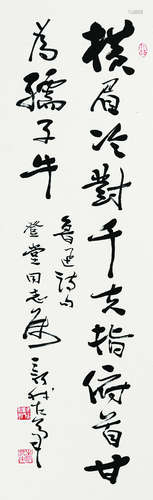 橫眉冷對千夫指俯首甘
為孺子牛
魯迅詩句
登堂同志屬
新我左筆